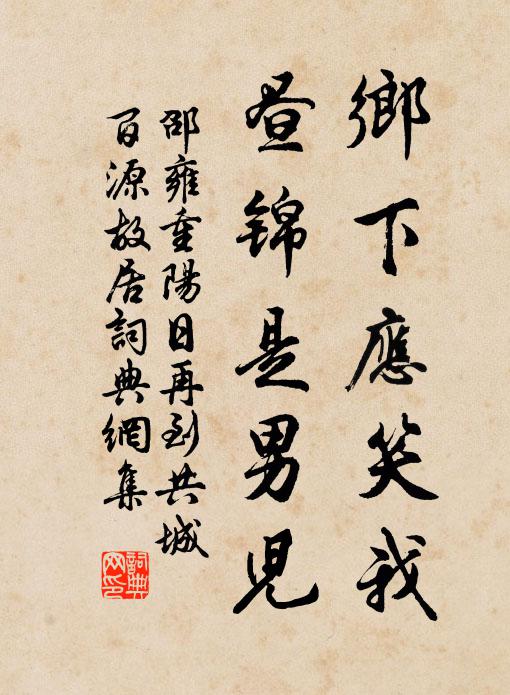 鄉下應笑我
晝錦是男兒
邵雍重陽日再到共城
百源故居詞典網集
詞典网印